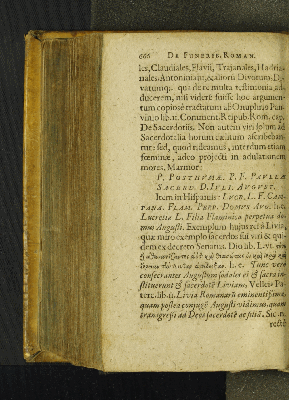 666 DE FUNERIB. ROMAN.
les, Claudiales, Flavii, Trajanales, Hadria-
nales, Antoniniani, & aliorū Divorum, Di-
varumq;. qua de re multa testimonia ad-
ducerem, nisi viderē fuisse hoc argumen-
tum copiosè tractatum ab Onuphrio Pan-
vinio lib. 11. Comment. Reipub. Rom. cap.
De Sacerdotiis. Non autem viri solùm ad
Sacerdotalia horum cultum ascribeban-
tur: sed, quod rideamus, interdum etiam
fœminæ, adeo projecti in adulationem
mores. Marmor:
P. POSTUMIÆ. P. F. PAULLÆ
SACERD. D. IULI. AUGUST.
Item in Hispaniis: LUCR. L. F. CAM-
PANA. FLAM. PERP. DOMUS AUG. hoc.
Lucretia L. Filia Flaminica perpetua do-
mus Augusti. Exemplum hujus rei à Livia,
quæ miro exemplo sacerdos sui viri & qui-
dem ex decreto Senatus. Dio lib. LVI.
i.e. Tunc verò
consecrantes Augustum sodales ei & sacra in-
stituerunt & sacerdotē Liviam. Velleius Pa-
terc. lib. II. Livia Romanarū eminentissima,
quam postea conjugē Augusti vidimus, quam
transgressi ad Deos sacerdotē ac filiā. Sic
rectè